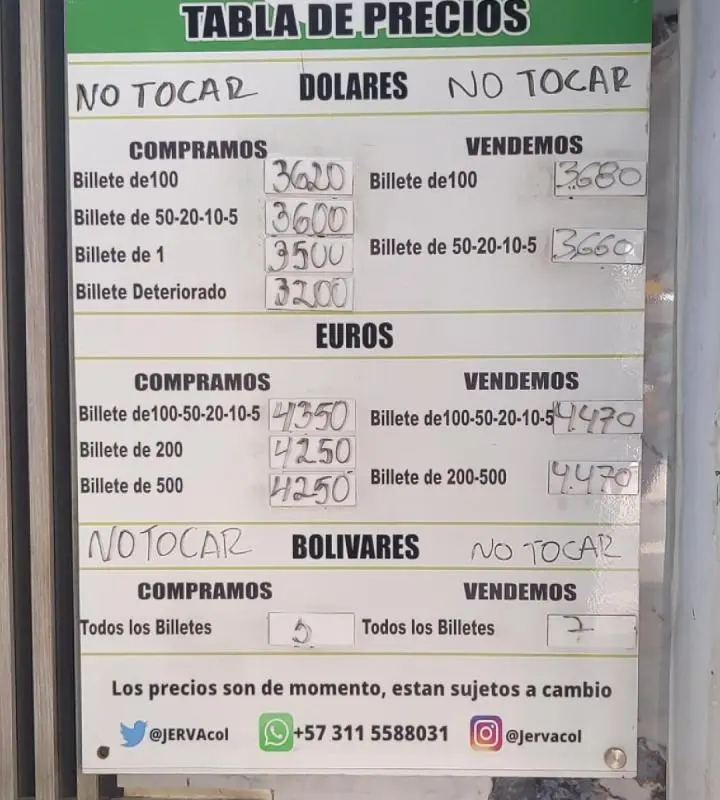 TABLA DE PRECIOS
NO TOCAR DOLARES NO TOCAR
COMPRAMOS VENDEMOS
Billete de100 3620 Billete de100 3680
Billete de 50-20-10-5 3600
Billete de 50-20-10-5 3660
Billete de 1 3500
Billete Deteriorado 3200
EUROS
COMPRAMOS VENDEMOS
Billete de100-50-20-10-5 4350 Billete de100-50-20-10-5 4.470
Billete de 200 4250
Billete de 200-500 4.470
Billete de 500 4250
NO TOCAR BOLIVARES NO TOCAR
COMPRAMOS VENDEMOS
Todos los Billetes 5 Todos los Billetes 7
Los precios son de momento, estan sujetos a cambio
@JERVAcol +57 311 5588031 @Jervacol